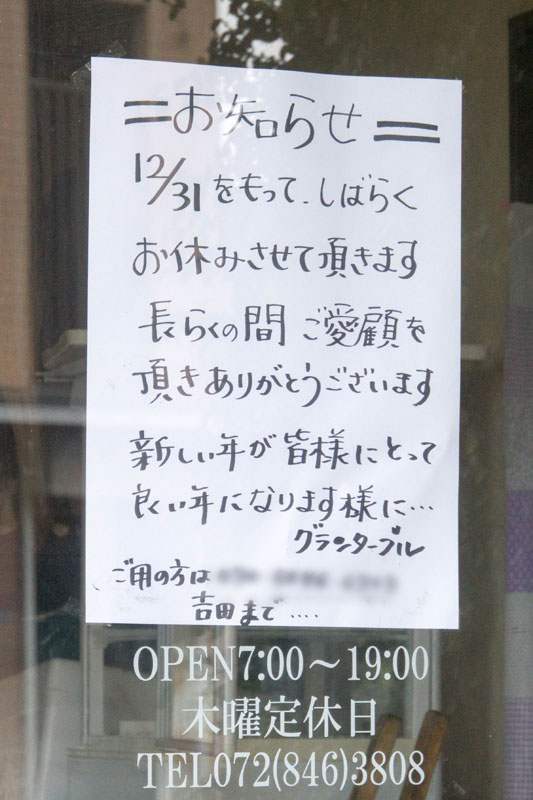 =お知らせ=
12/31をもって、しばらく
お休みさせて頂きます
長らくの間 ご愛顧を
頂きありがとうございます
新しい年が皆様にとって
良い年になります様に…
グランターブル
ご用の方は
吉田まで‥‥
OPEN7:00～19:00
木曜定休日
TEL072(846)3808